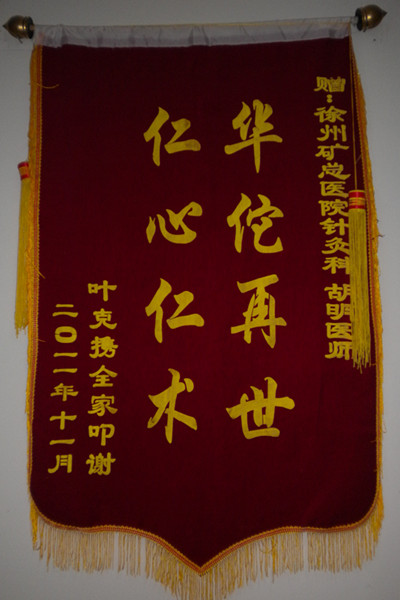 赠:徐州矿总医院针灸科 胡明医师
华佗再世
仁心仁术
叶克携全家叩谢
二〇一一年十一月